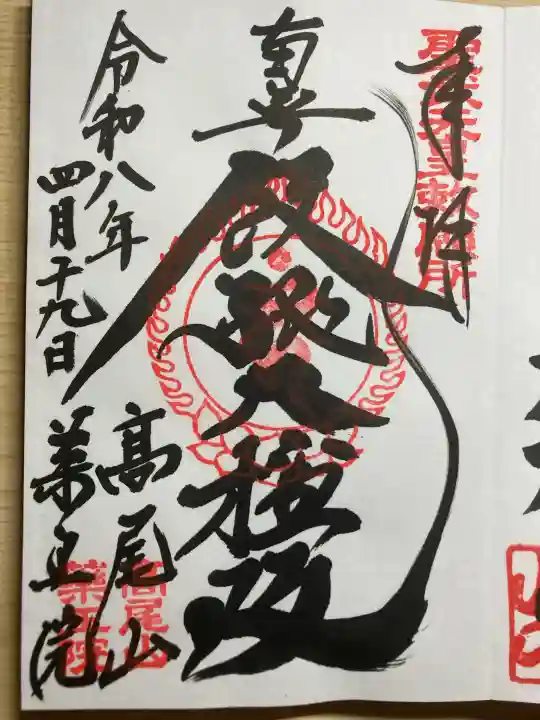 奉拝
聖武天皇勅願所
飯縄大権現
高尾山
薬王院
高尾山
薬王院
令和八年
四月十九日